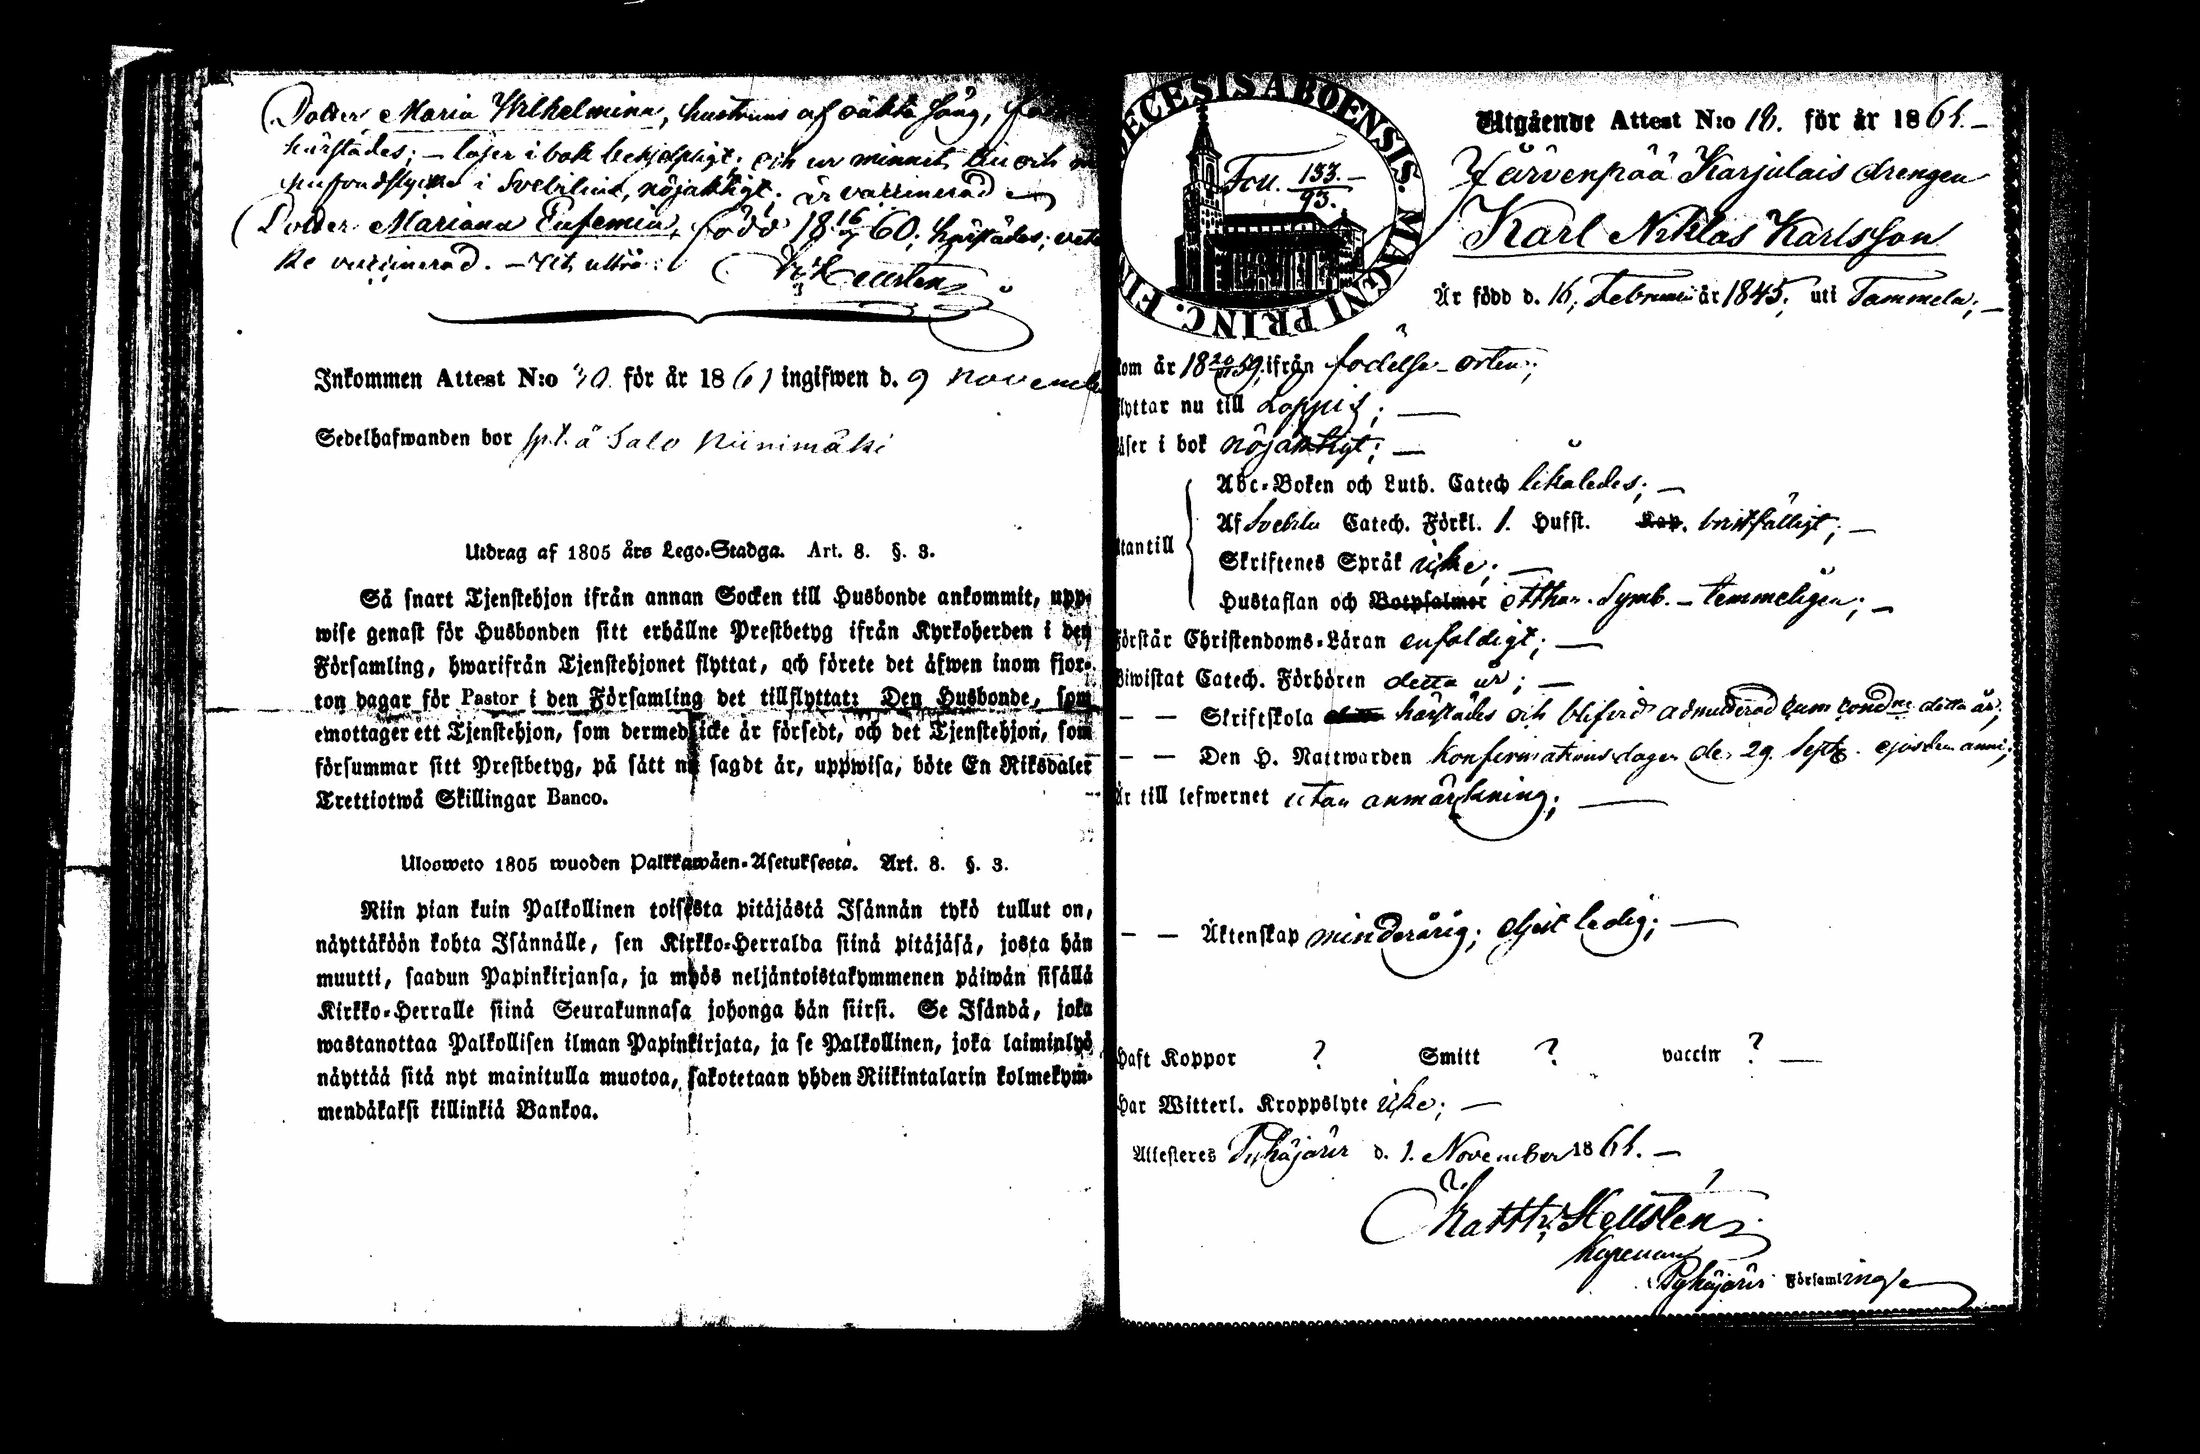 Dotter Maria Wilhelmina, hustruns af oäkta säng,
härstädes; — läser i bok behjelpligt; och ur minnet
hufvudstycke i Svebilius, nöjaktigt; är vaccinerad
Dotter Mariana Eufemia, född 18 16 60; härstädes;
ke vaccinerad. —
Inkommen Attest N:o 30. för år 1861 ingifwen d. 9 november
Sedelhafwanden bor å Salo Niinimäki
Utdrag af 1805 års Lego-Stadga. Art. 8. §. 3.
Så snart Tjenstehjon ifrån annan Socken till Husbonde ankommit, upp-
wise genast för Husbonden sitt erhållne Prestbetyg ifrån Kyrkoherden i den
Församling, hwarifrån Tjenstehjonet flyttat, och förete det äfwen inom fjor-
ton dagar för Pastor i den Församling det tillflyttat: Den Husbonde, som
emottager ett Tjenstehjon, som dermed icke är försedt, och det Tjenstehjon, som
försummar sitt Prestbetyg, på sätt nu sagdt är, uppwisa, böte En Riksdaler
Trettiotwå Skillingar Banco.
Ulosweto 1805 wuoden Palkkawäen-Asetuksesta. Art. 8. §. 3.
Niin pian kuin Palkollinen toisesta pitäjästä Isännän tykö tullut on,
näyttäköön kohta Isännälle, sen Kirkko-Herralda siinä pitäjäsä, josta hän
muutti, saadun Papinkirjansa, ja myös neljäntoistakymmenen päiwän sisällä
Kirkko-Herralle siinä Seurakunnasa johonga hän siirsi. Se Isändä, joka
wastanottaa Palkollisen ilman Papinkirjata, ja se Palkollinen, joka laiminlyö
näyttää sitä nyt mainitulla muotoa, sakotetaan yhden Riikintalarin kolmekym-
mendäkaksi killinkiä Bankoa.
ECESIS ABOENSIS. MAGNI PRINC. FI
Foll. 133. 93.
Utgående Attest N:o 18. för år 1861. —
Järvenpää Karjulais drengen
Karl Niklas Karlsson
Är född d. 16; Februari år 1845; uti Tammela; —
kom år 18 59. ifrån födelse-orten;
flyttar nu till Loppis; —
läser i bok nöjaktigt; —
Abc-Boken och Luth. Catech likaledes; —
Af Svebilii Catech. Förkl. 1. Hufst. Kap. bristfälligt; —
utantill
Skriftenes Språk icke; —
Hustaflan och Botpsalmer Athan. Symb. — temmeligen; —
Förstår Christendoms-Läran enfaldigt; —
Biwistat Catech. Förhören detta år; —
— — Skriftskola härstädes och blifvit admitterad cum cond detta år;
— — Den H. Nattwarden konfirmationsdagen den 29. Sept. ejusdem anni;
Är till lefwernet utan anmärkning; —
— — Äktenskap minderårig; eljest ledig; —
Haft Koppor ? Smitt ? vaccin ? —
Har Witterl. Kroppslyte icke; —
Attesteres Pyhäjärvi d. 1. November 1861. —
Matth. Hellstén
Pyhäjärvi Församling